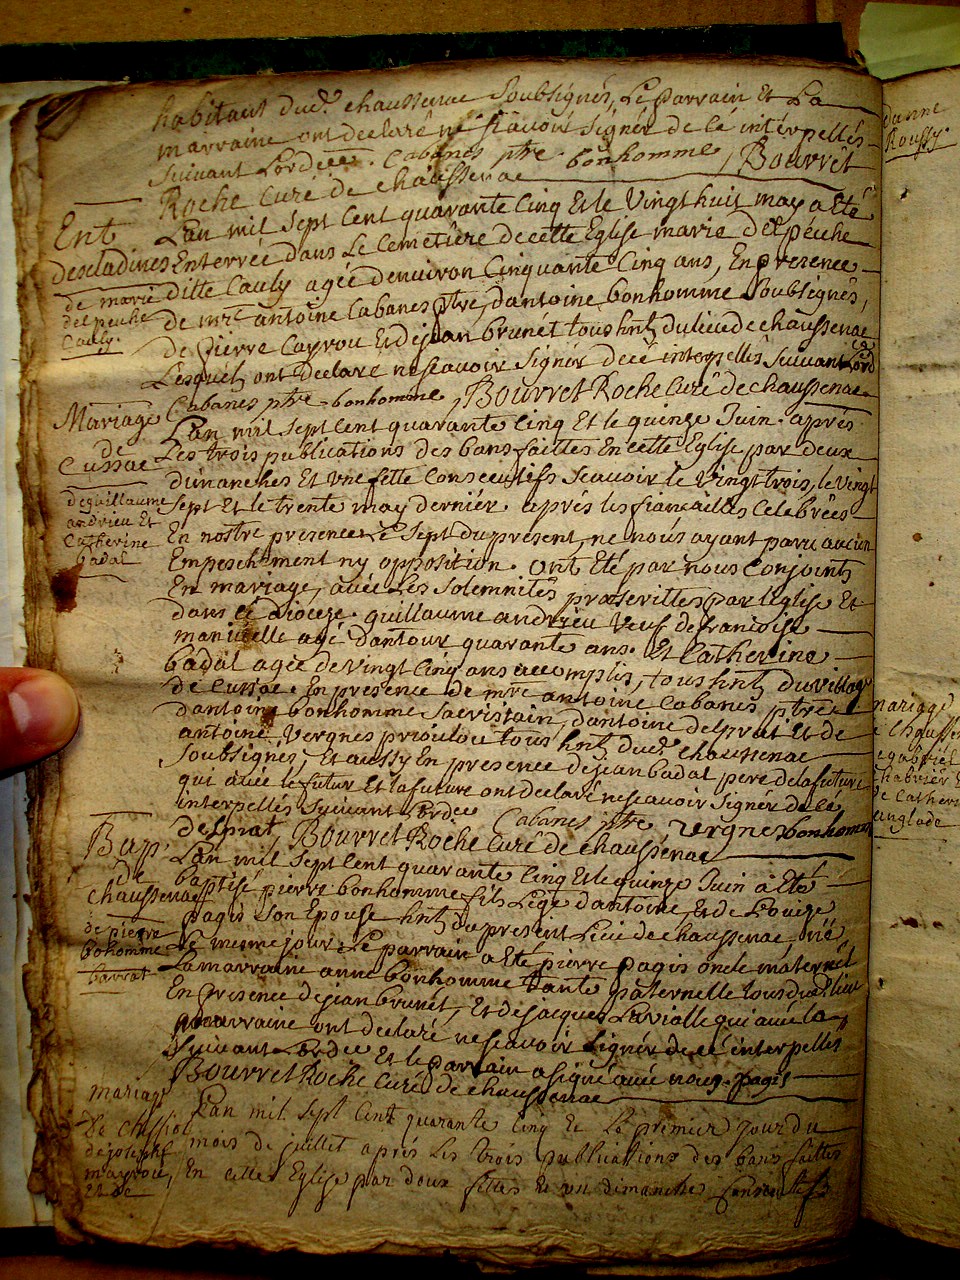 habitant dud. chaussenac Soubsignés, Le parrain Et La
marraine ont declaré ne sçavoir signér de cé intérpellés
suivant Lord. Cabanes ptre. bonhomme, Bourret
Roche Curé de chaussenac
Ent
descladines
de marie
delpeuche
Cauly.
L'an mil sept Cent quarante Cinq Et le Vingt huit may a Eté
Enterrée dans Le Cemetiére de cette Eglise marie delpéche
ditte Cauly agée denviron Cinquante Cinq ans, En presence
de mre antoine Cabanes ptre, dantoine bonhomme Soubsignés,
de pierre Cayrou Et de jean brunét tous hnts du lieu de chaussenac
Lesquels ont declaré ne scavoir signér de cé interpellés suivant Lord
Cabanes ptre bonhomme, Bourret Roche Curé de chaussenac
Mariage
de
Cussac
de guillaume
andrieu Et
Catherine
badal
L'an mil sept Cent quarante Cinq Et le quinze Juin aprés
Les trois publications des bans faittes En cette Eglise par deux
dimanches Et une fette Consecutifs Scavoir le Vingt trois, le Vingt
sept Et le trente may derniér aprés les fiancailles Celebrées
En nostre presence Le Sept du present, ne nous ayant paru aucun
Empeschement ny opposition. ont Eté par nous Conjoints
En mariage, avec Les Solemnités prescrittes par L'Eglise Et
dans cé dioceze. guillaume andrieu Veuf de francoise
manielle agé dantour quarante ans. Et Catherine
badal agée de Vingt Cinq ans accomplis, tous hnts du village
de Cussac. En presence de mre antoine Cabanes ptre
dantoine bonhomme Sacristain, dantoine delprat Et de
antoine Vergnes prioulou tous hnts dud. chaussenac
Soubsignés, Et aussy En presence de jean badal pere de la future
qui avec le futur Et la future ont declaré ne scavoir signér de cé
interpellés suivant Lord
delprat Cabanes ptre vergnes bonhomme
Bourret Roche Curé de chaussenac
Bap
De
Chaussenac
de pierre
bohomme
barrat
L'an mil sept Cent quarante Cinq Et le quinze Juin a Eté
baptisé pierre bonhomme fils Lege dantoine, Et de Louize
pagis son Epouse hnts du present Lieu de chaussenac, né
Le mesme jour. Le parrain a Eté pierre pagis oncle maternél
La marraine anne bonhomme tante paternelle tous dud. lieu
En presence de jean brunét, Et de jacques Lavialle qui avec la
marraine ont declaré ne scavoir signér de cé interpellés
suivant Et le parrain a signé avec nous. pagis
Bourret Roche Curé de chaussenac
mariage
De
de joseph
mayrou,
Et de
L'an mil sept Cent quarante Cinq Et Le premier jour du
mois de juillet aprés Les trois publications des bans faittes
En cette Eglise par deux fettes Et un dimanche Consecutifs
danne
Roussy.
mariage
chaussen
gabriél
Chabriér E
de Catheri
anglade